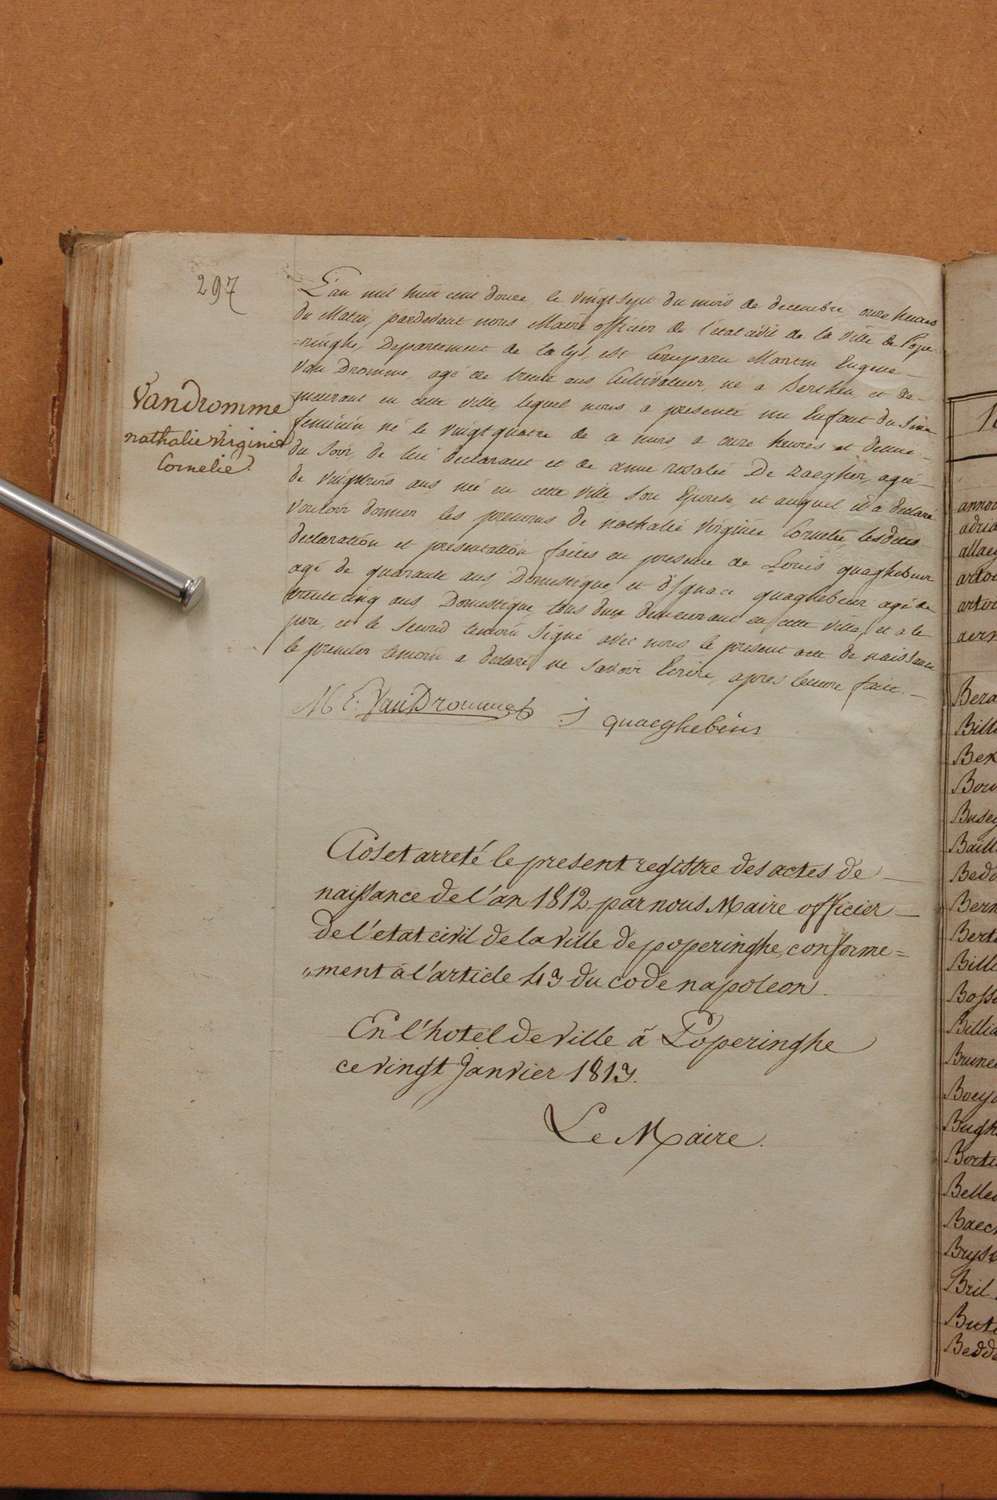 297
Vandromme
nathalie virginie
Cornelie
L'an mil huit cent douze le vingt sept du mois de decembre, onze heures
du Matin, pardevant nous Maire officier de l'etat civil de la ville de Pope
=ringhe, Departement de la lys, est Comparu Martin Eugene
Van Dromme, agé de trente ans Cultivateur, né a Berthen et de=
meurant en cette ville, lequel nous a presenté un Enfant du Sexe
feminin né le vingt quatre de ce mois, a onze heures et demie
du Soir, de lui declarant et de anne rosalie De Zaegher, agée
de vingttrois ans née en cette ville Son Epouse, et auquel il a declaré
vouloir donner les prenoms de nathalie Virginie Cornelie, les dites
declaration et presentation faites en presence de Louis quaghebeur
agé de quarante ans Domestique et d'Ignace quaghebeur agé de
trente cinq ans Domestique, tous deux demeurant en cette ville, et a le
pere, et le Second temoin Signé avec nous le present acte de naissance
le premier temoin a declaré ne Savoir Ecrire, apres lecture faite.
M E VanDromme J quaeghebeur
Clos et arreté le present registre des actes de
naissance de l'an 1812 par nous Maire officier
de l'etat civil de la ville de poperinghe, conforme=
"ment à l'article 43 du code napoleon.
En l'hotel de ville à Poperinghe
ce vingt Janvier 1813.
Le Maire.
Bera
Bill
Bek
Bou
Buse
Baill
Bedd
Bern
Bert
Bille
Boss
Billia
Brune
Boey
Bugh
Borte
Belle
Baec
Brys
Bril
Bute
Bedd